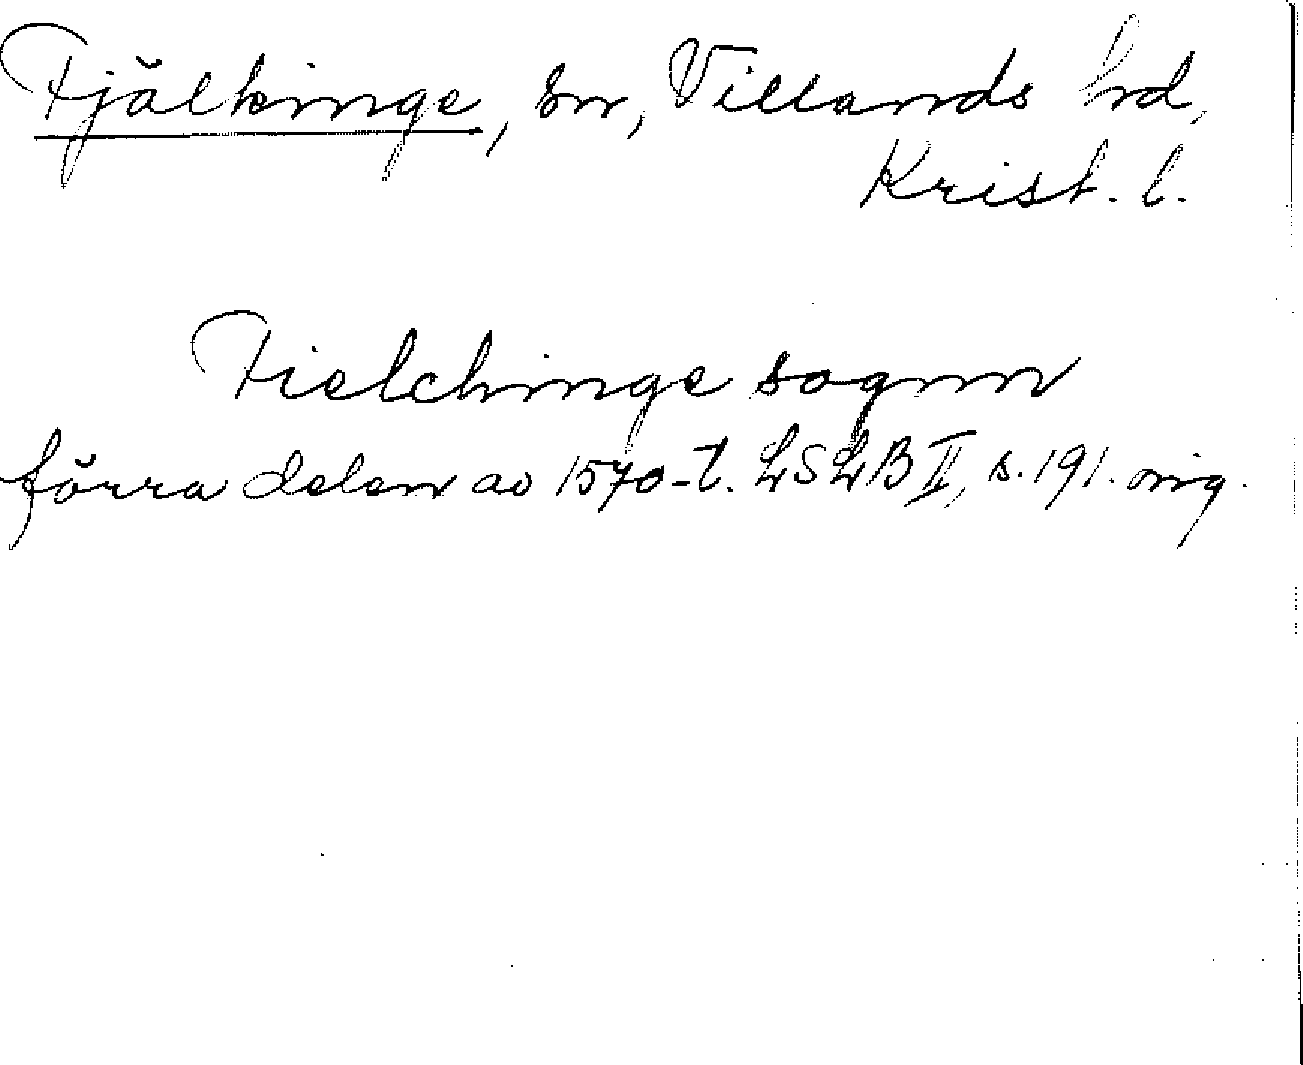 Fjälkinge, sn, Villands hd,
Krist. l.
Fielchinge sognn
förra delen av 1570-t. LSLB II, s. 191. orig.